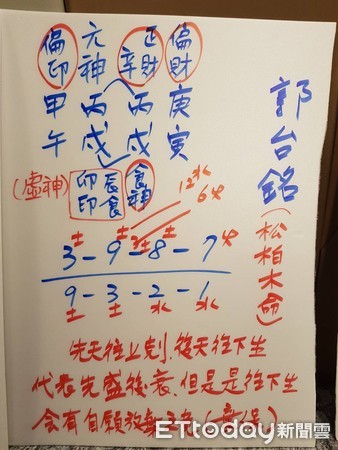 偏印 元神 正財 偏財
辛
甲 丙 丙 庚
午 戌 戌 寅
郭台銘(松柏木命)
(虛神) 卯 辰 食神
印 食
12水
6火
土 土 土 火
3-9-8-7
9-3-2-1
土 土 水 水
先天往上剋、後天往下生
代表先盛後衰、但是是往下生
會有自願放棄
ETtoday新聞雲